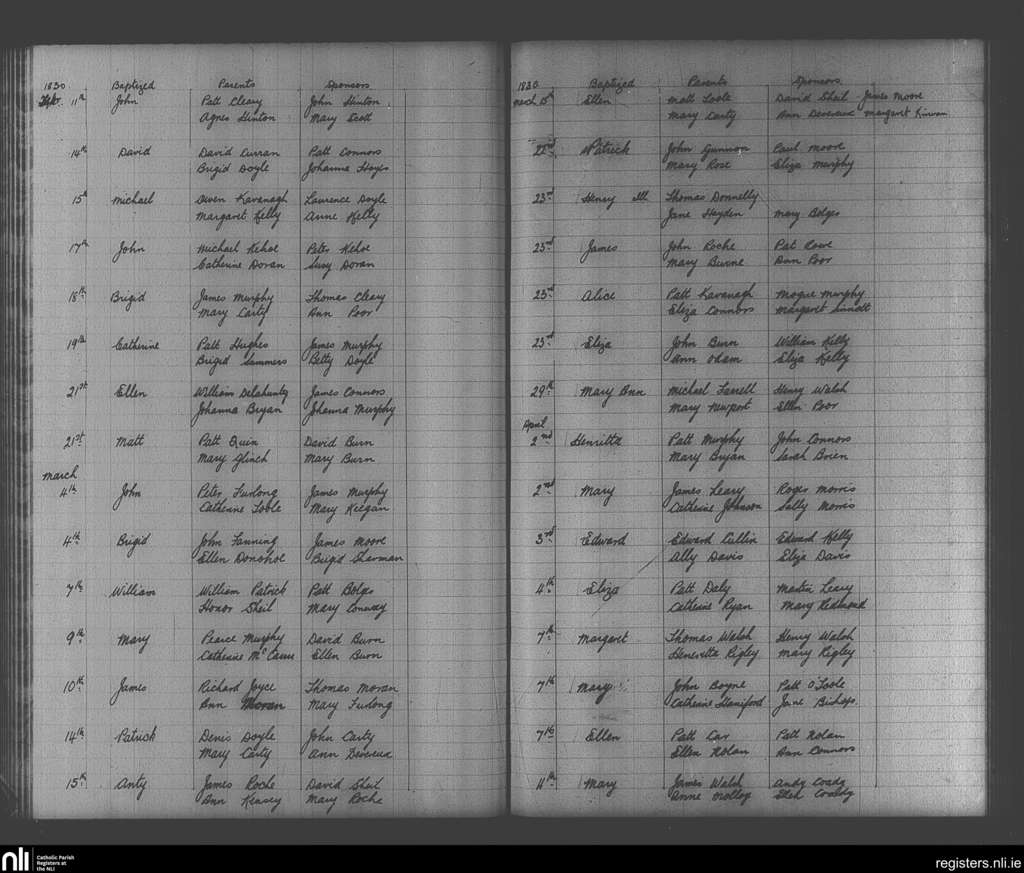 1830 Baptized Parents Sponsors
Feb. 11th John Patt Cleary John Hinton
Agnes Hinton Mary Scott
14th David David Curran Patt Connors
Brigid Doyle Johanna Hayes
15th Michael Owen Kavanagh Laurence Doyle
Margaret Kelly Anne Kelly
17th John Michael Kehoe Peter Kehoe
Catherine Doran Susy Doran
18th Brigid James Murphy Thomas Cleary
Mary Carty Ann Poor
19th Catherine Patt Hughes James Murphy
Brigid Summers Betty Doyle
21st Ellen William Delahunty James Connors
Johanna Bryan Johanna Murphy
21st Matt Patt Quin David Burn
Mary Glinch Mary Burn
March
4th John Peter Furlong James Murphy
Catherine Toole Mary Keegan
4th Brigid John Fanning James Moore
Ellen Donohoe Brigid Sherman
7th William William Patrick Patt Bolge
Honor Sheil Mary Conway
9th Mary Pearce Murphy David Burn
Catherine McCann Ellen Burn
10th James Richard Joyce Thomas Moran
Ann Moran Mary Furlong
14th Patrick Denis Doyle John Carty
Mary Carty Ann Devereux
15th Anty James Roche David Sheil
Ann Kensey Mary Roche
1830 Baptized Parents Sponsors
March 15th Ellen Matt Toole David Sheil James Moore
Mary Carty Ann Devereux Margaret Kirwan
22nd Patrick John Gunnon Paul Moore
Mary Rose Eliza Murphy
23rd Henry ill Thomas Donnelly
Jane Hayden Mary Bolges
23rd James John Roche Pat Rowe
Mary Burne Ann Poor
23rd Alice Patt Kavanagh Mogue Murphy
Eliza Connors Margaret Sinnott
23rd Eliza John Burn William Kelly
Ann Odam Eliza Kelly
29th Mary Ann Michael Farrell Henry Walsh
Mary Newport Ellen Poor
April
2nd Henrietta Patt Murphy John Connors
Mary Bryan Sarah Brien
2nd Mary James Leary Roger Morris
Catherine Johnson Sally Morris
3rd Edward Edward Cullin Edward Kelly
Ally Davis Eliza Davis
4th Eliza Patt Daly Martin Leary
Catherine Ryan Mary Redmond
7th Margaret Thomas Walsh Henry Walsh
Henrietta Rigley Mary Rigley
7th Mary John Boyne Patt O'Toole
Catherine Staniford Jane Bishop
7th Ellen Patt Car Patt Nolan
Ellen Nolan Ann Connors
11th Mary James Walsh Andy Coady
Anne Coady
nli Catholic Parish
Registers at
the NLI
registers.nli.ie